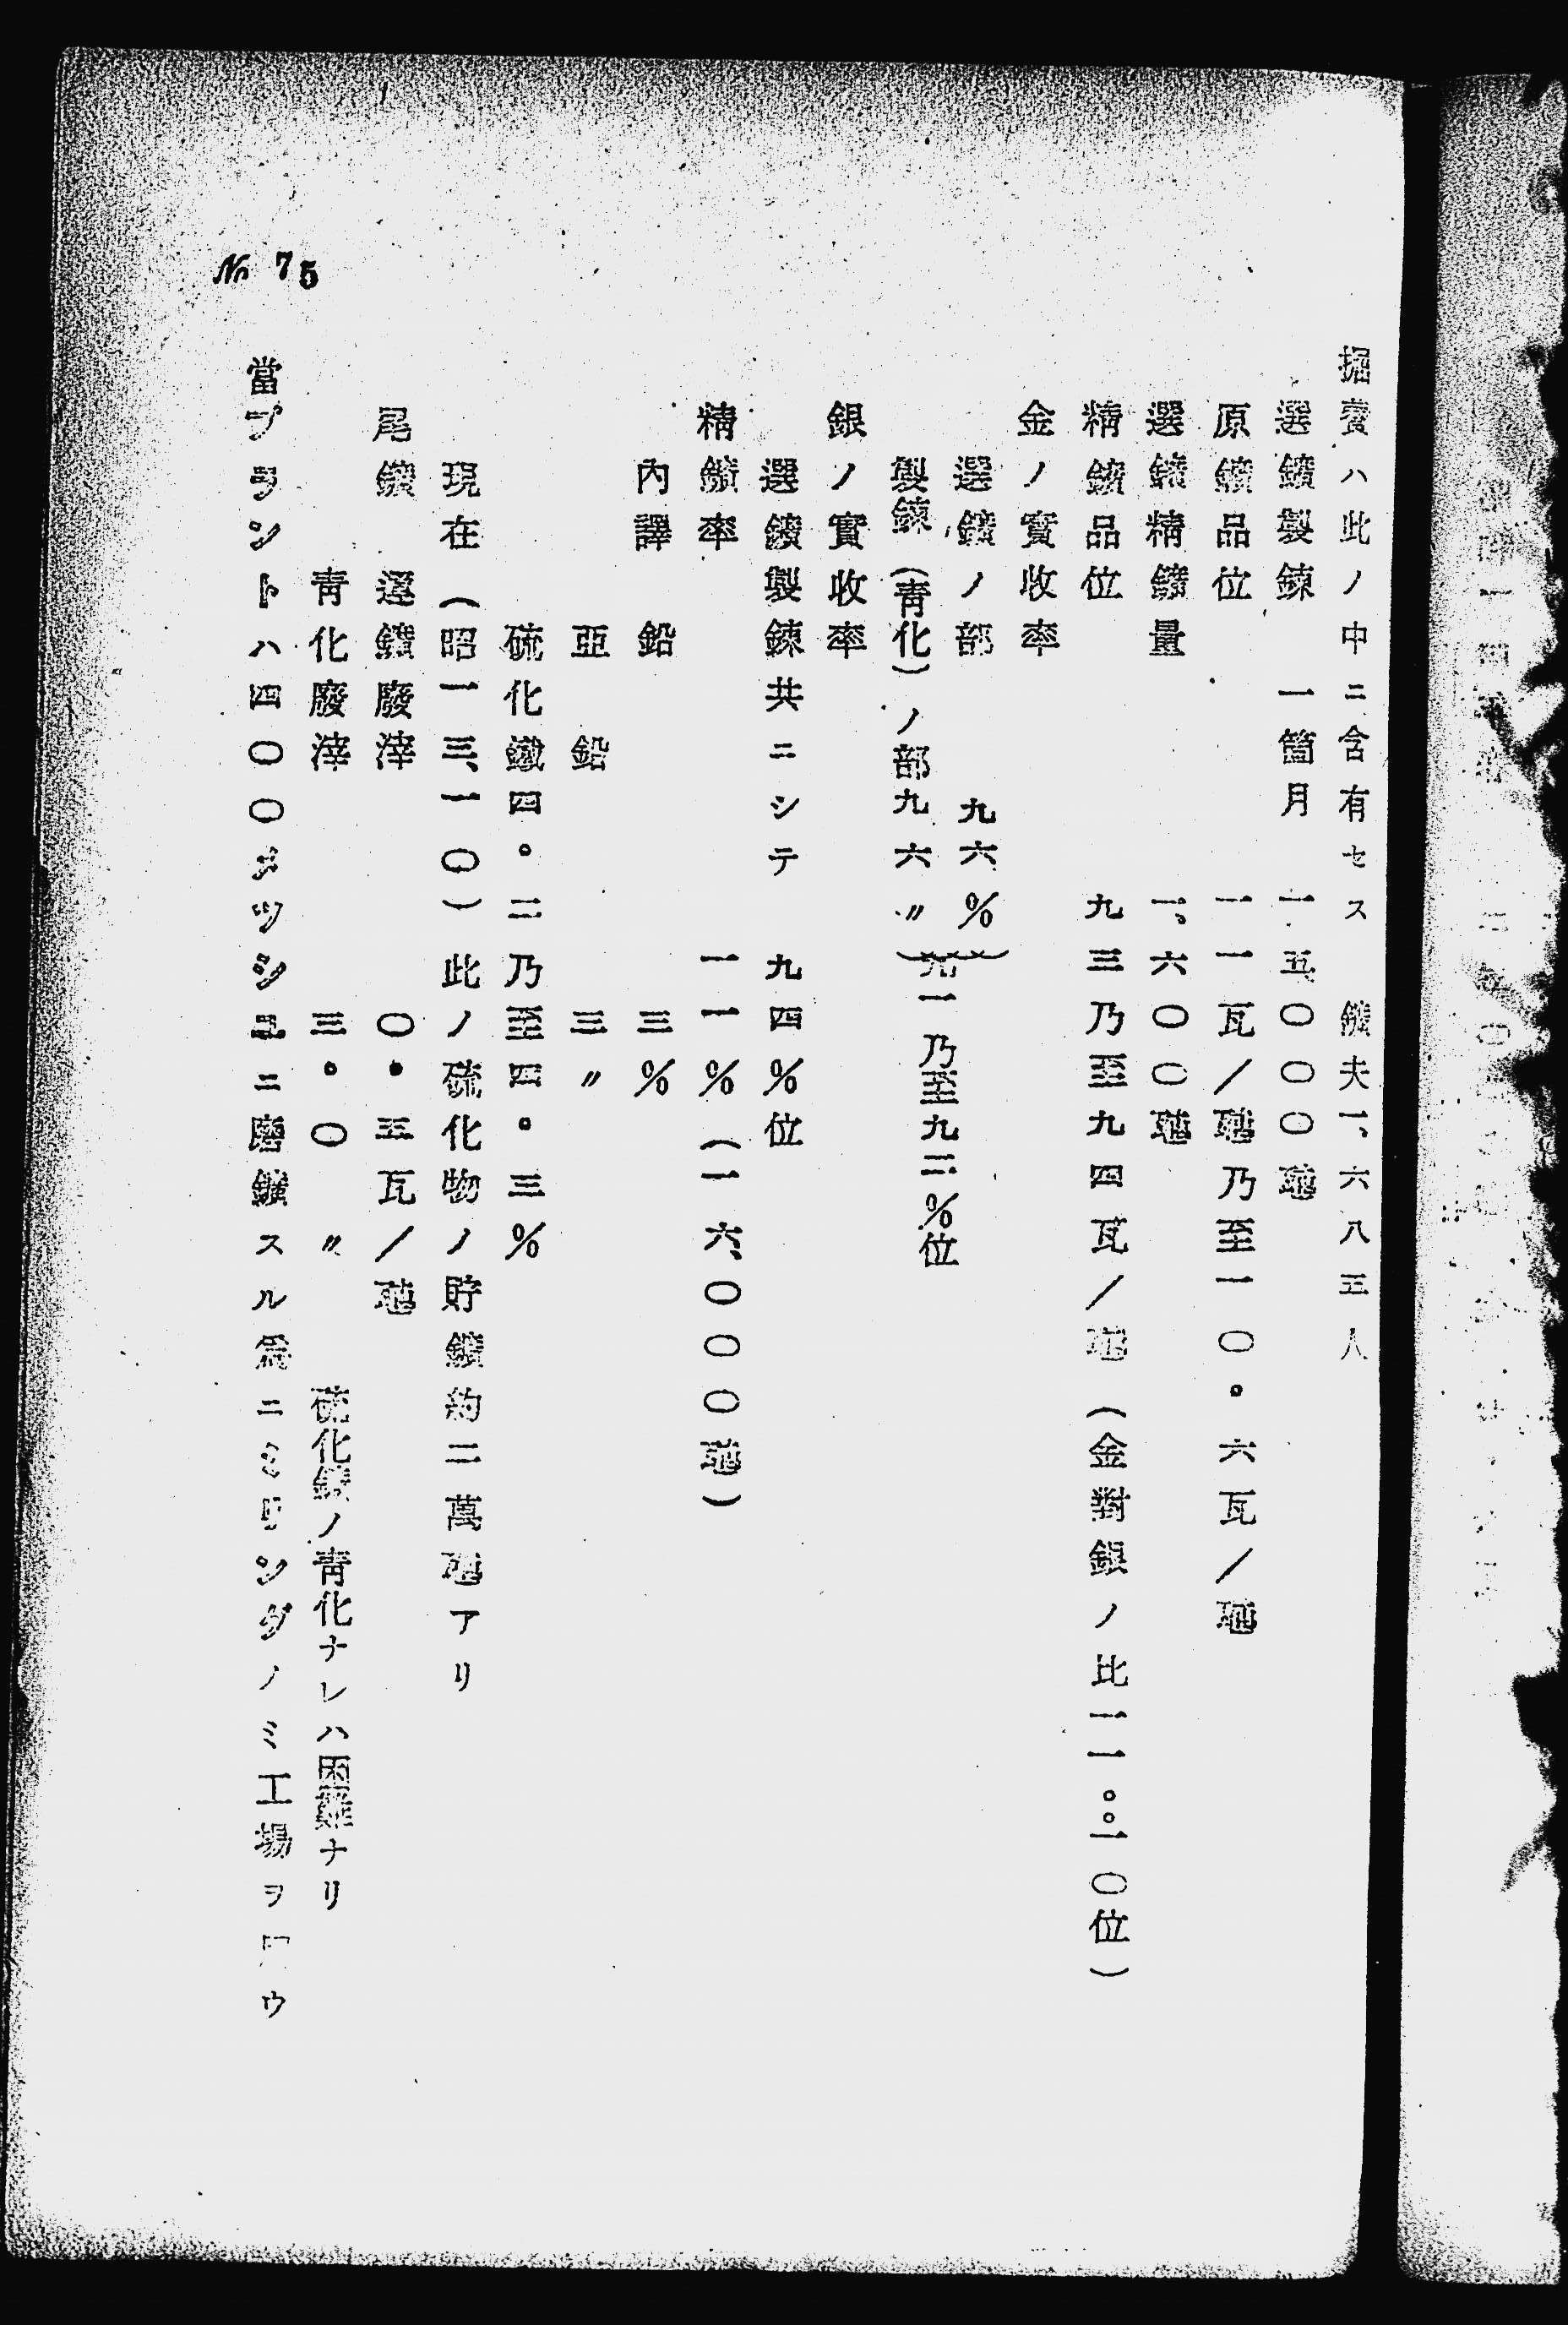 掘賽ハ此ノ中ニ含有セス 鑛夫一、六八五人
選鑛製鍊 一箇月 一五、〇〇〇瓲
原鑛品位 一一瓦/瓲乃至一〇。六瓦/瓲
選鑛精鑛量 一、六〇〇瓲
精鑛品位 九三乃至九四瓦/瓲(金對銀ノ比 一。〇位)
金ノ實收率
選鑛ノ部 九六%
製鍊(靑化)ノ部九六〃
九一乃至九二%位
銀ノ實收率
選鑛製鍊共ニシテ 九四%位
精鑛率 一一%(一六、〇〇〇瓲)
內譯 鉛 三%
亞鉛 三〃
硫化鐵四。二乃至四。三%
現在(昭一三、一〇)此ノ硫化物ノ貯鑛約二萬瓲アリ
尾鑛 選鑛廢滓 〇・五瓦/瓲
靑化廢滓 三。〇〃 硫化鑛ノ靑化ナレハ困難ナリ
當プラントハ四〇〇メツシユニ磨鑛スル爲ニミリングノミ工場ヲウ
№ 75